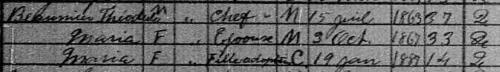 Beaumier Theodule M " Chef - M 15 juil 1863 37 Q
Maria F " Epouse M 3 Oct 1867 33 Q
Maria F " Fille adoptée C 19 jan 1887 14 Q